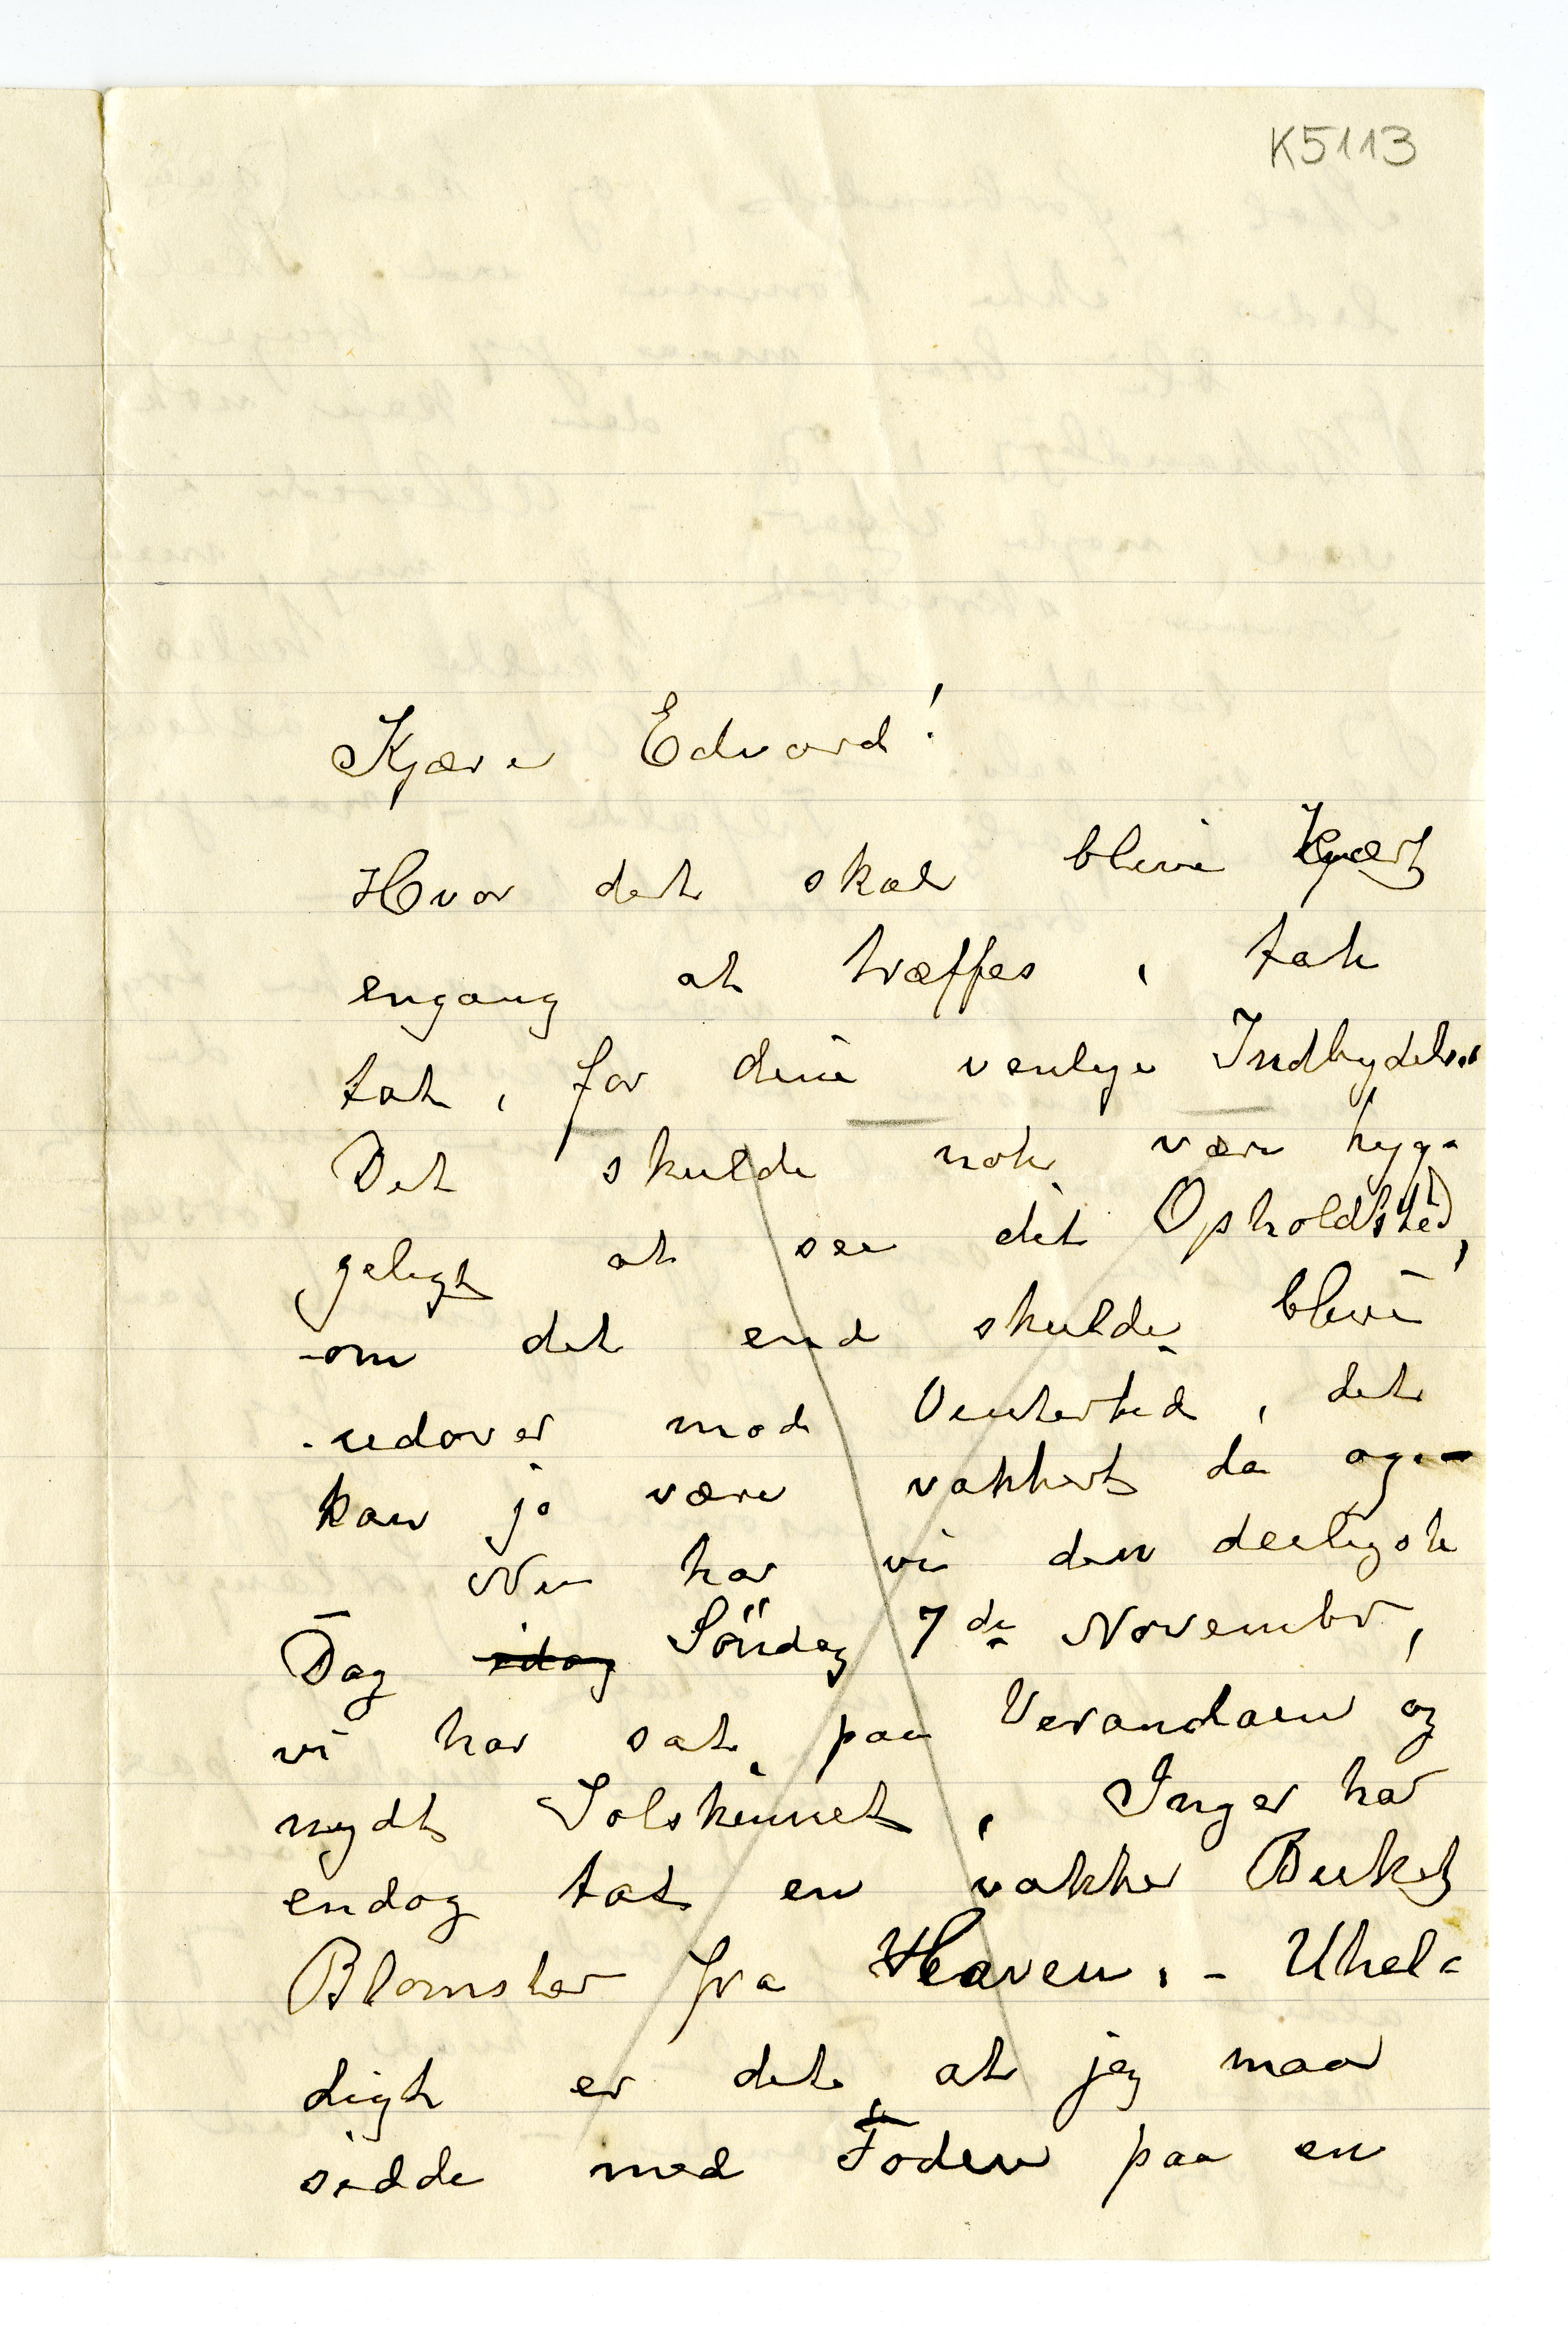 K5113
Kjære Edvard!
Hvor det skal blive kjært
engang at træffes, tak
tak, for dine venlige Indbydelser
Det skulde nok være hyg-
geligt at see dit Opholdsted,
-om det end skulde blive
udover mod Vintertid, det
kan jo være vakkert da og.-
Nu har vi den deiligste
Dag idag Söndag 7de Novembr,
vi har sat paa Verandaen og
nydt Solskinnet, Inger har
endog tat en vakker Buket
Blomster fra Haven. - Uhel-
digt er det at jeg maa
sidde med Foden paa en